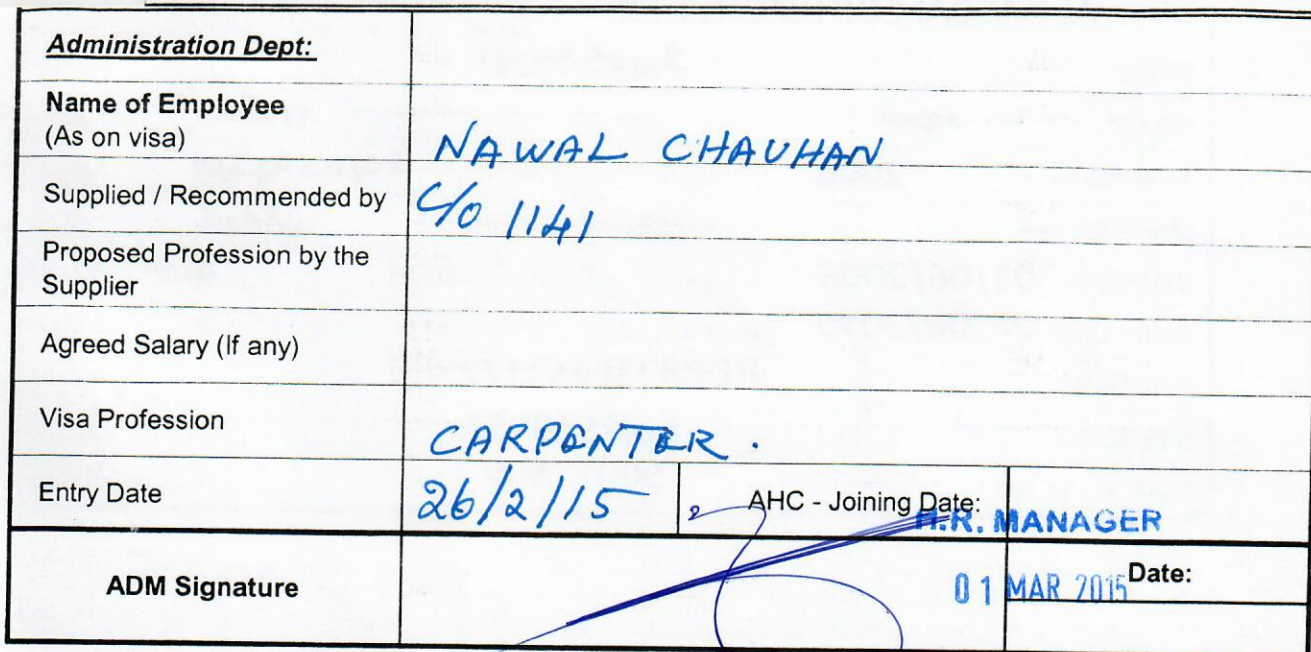 Administration Dept:
Name of Employee
(As on visa)
NAWAL CHAUHAN
Supplied / Recommended by
C/o 1141
Proposed Profession by the
Supplier
Agreed Salary (If any)
Visa Profession
CARPENTER.
Entry Date
26/2/15
AHC - Joining Date:
H.R. MANAGER
ADM Signature
01 MAR 2015
Date: